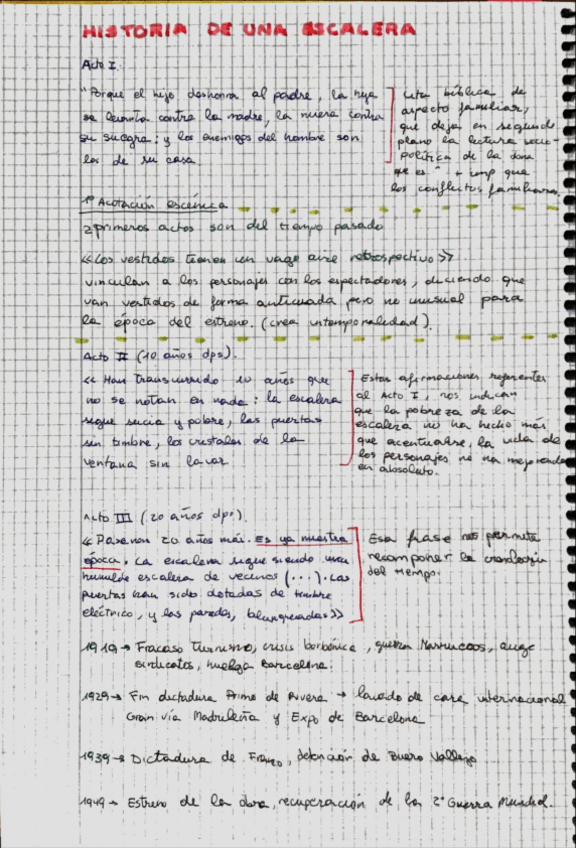 HISTORIA DE UNA ESCALERA
Acto I.
"Porque el hijo deshonra al padre, la hija
se levanta contra la madre, la nuera contra
su suegra: y los enemigos del hombre son
los de su casa
Cita bíblica de
aspecto familiar,
que deja en segundo
plano la lectura socio-
política de la obra
que es + imp que
los conflictos familiares.
1º Acotación escénica
2 primeros actos son del tiempo pasado
<<Los vestidos tienen un vago aire retrospectivo>>
vinculan a los personajes con los espectadores, diciendo que
van vestidos de forma anticuada pero no inusual para
la época del estreno. (crea intemporalidad).
Acto II (10 años dps).
<< Han transcurrido 10 años que
no se notan en nada: la escalera
sigue sucia y pobre, las puertas
sin timbre, los cristales de la
ventana sin lavar
Estas afirmaciones referentes
al Acto I, nos indican
que la pobreza de la
escalera no ha hecho más
que acentuarse, la vida de
los personajes no ha mejorado
en absoluto.
Acto III (20 años dps).
<< Pasaron 20 años más. Es ya nuestra
época. La escalera sigue siendo una
humilde escalera de vecinos (...). Las
puertas han sido dotadas de timbre
eléctrico, y las paredes, blanqueadas>>
Esa frase nos permite
recomponer la cronología
del tiempo.
1919→ Fracaso Turnismo, crisis borbónica, guerra Marruecos, auge
sindicatos, huelga Barcelona.
1929→ Fin dictadura Primo de Rivera → lavado de cara internacional
Gran vía Madrileña y Expo de Barcelona
1939→ Dictadura de Franco, detención de Buero Vallejo
1949→ Estreno de la obra, recuperación de la 2º Guerra Mundial.